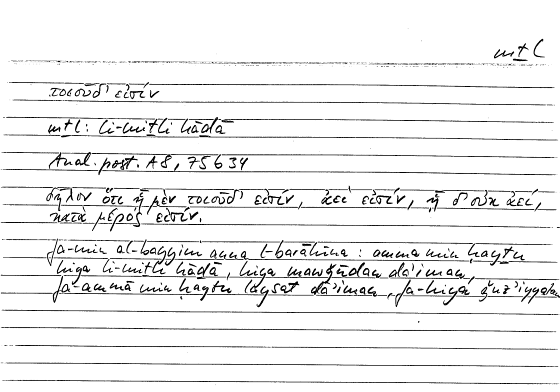 mṯl
τοιοῦδ' εἰσίν
mṯl: li-miṯli hāḏā
Anal. post. A8, 75b34
δῆλον ὅτι ᾗ μὲν τοιοῦδ' εἰσίν, ἀεί εἰσιν, ᾗ δ' οὐκ ἀεί,
κατὰ μέρος εἰσίν.
fa-min al-bayyini anna l-barāhīna: ammā min ḥayṯu
hiya li-miṯli hāḏā, hiya mawǧūdan dā'iman,
fa-ammā min ḥayṯu laysat dā'iman, fa-hiya ǧuz'iyyatan